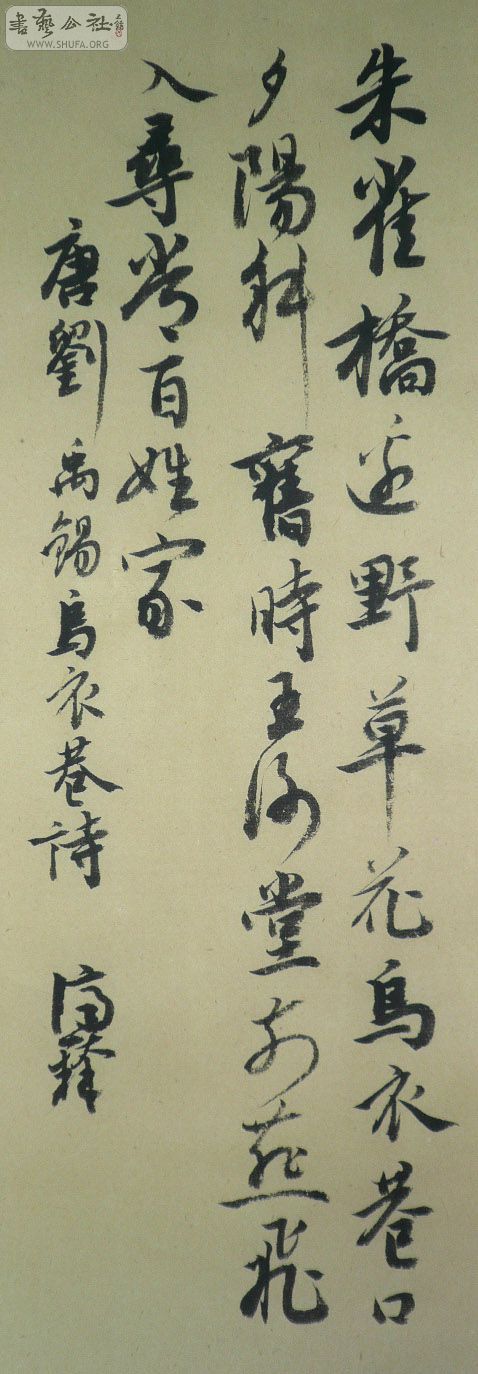 朱雀橋邊野草花烏衣巷口
夕陽斜舊時王謝堂前燕飛
入尋常百姓家
唐劉禹錫烏衣巷詩
書藝公社
WWW.SHUFA.ORG